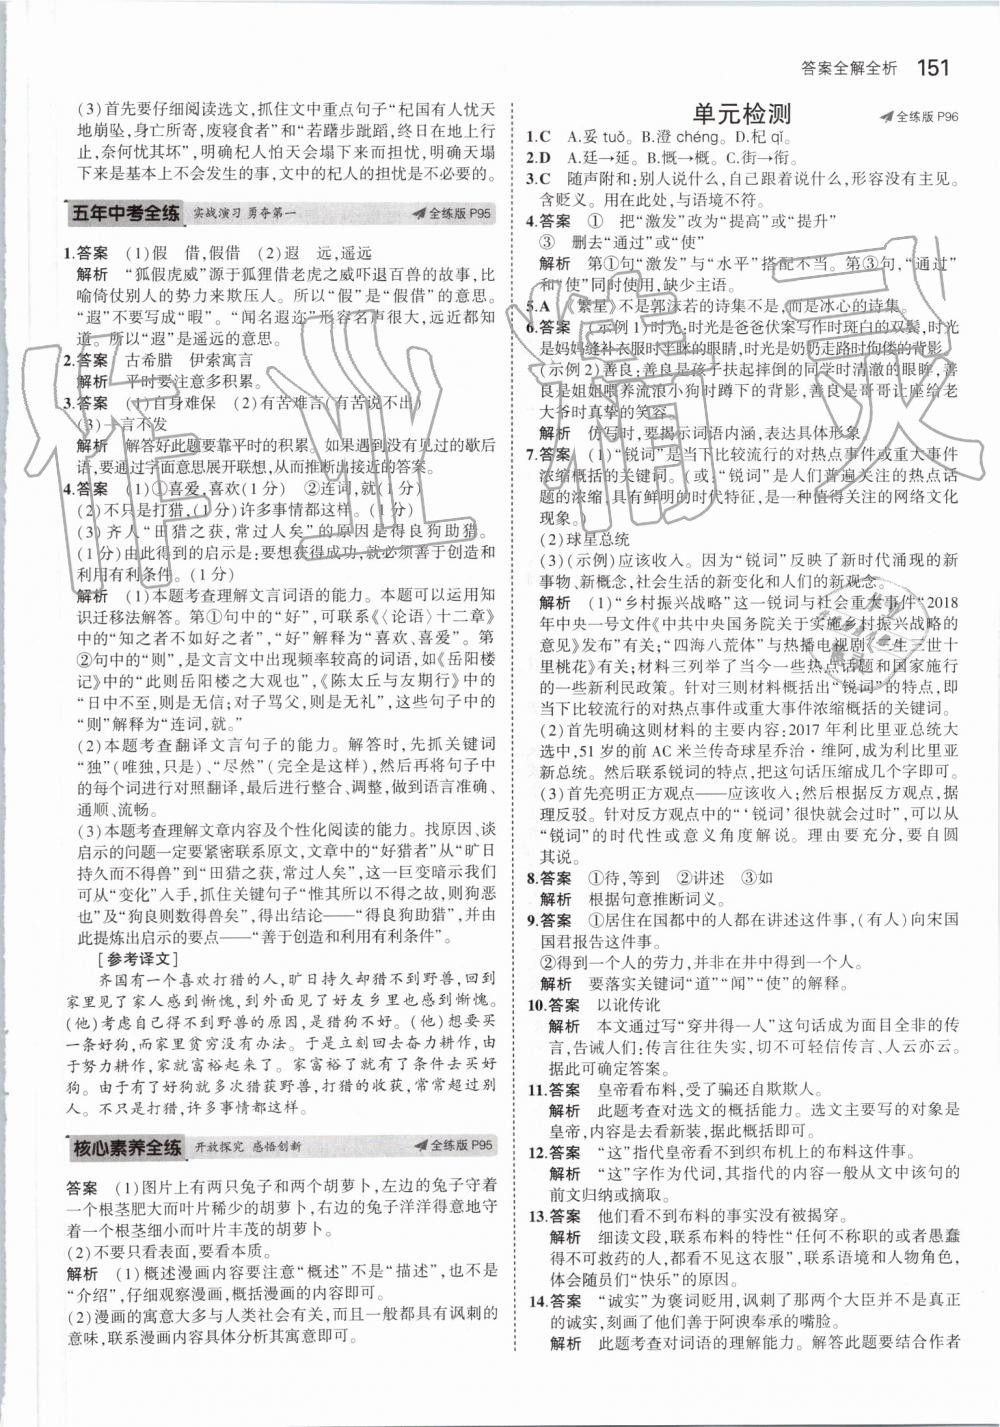 答案全解全析 151
(3)首先要仔细阅读选文,抓住文中重点句子“杞国有人忧天
地崩坠,身亡所寄,废寝食者”和“若躇步跐蹈,终日在地上行
止,奈何忧其坏”,明确杞人怕天塌下来而担忧,明确天塌
下来是基本上不会发生的事,文中的杞人的担忧是不必要的。
五年中考全练 实战演习 勇夺第一 全练版 P95
1.答案 (1)假 借,假借 (2)遐 远,遥远
解析 “狐假虎威”源于狐狸借老虎之威吓退百兽的故事,比
喻倚仗别人的势力来欺压人。所以“假”是“假借”的意思。
“遐”不要写成“暇”。“闻名遐迩”形容名声很大,远近都知
道。所以“遐”是遥远的意思。
2.答案 古希腊 伊索寓言
解析 平时要注意多积累。
3.答案 (1)自身难保 (2)有苦难言(有苦说不出)
(3)一言不发
解析 解答好此题要靠平时的积累。如果遇到没有见过的歇后
语,要通过字面意思展开联想,从而推断出接近的答案。
4.答案 (1)①喜爱,喜欢(1分) ②连词,就(1分)
(2)不只是打猎,(1分)许多事情都这样。(1分)
(3)齐人“田猎之获,常过人矣”的原因是得良狗助猎。
(1分)由此得到的启示是:要想获得成功,就必须善于创造和
利用有利条件。(1分)
解析 (1)本题考查理解文言词语的能力。本题可以运用知
识迁移法解答。第①句中的“好”,可联系《〈论语〉十二章》
中的“知之者不如好之者”,“好”解释为“喜欢、喜爱”。第
②句中的“则”,是文言文中出现频率较高的词语,如《岳阳楼
记》中的“此则岳阳楼之大观也”,《陈太丘与友期行》中的
“日中不至,则是无信;对子骂父,则是无礼”,这些句子中的
“则”解释为“连词,就。”
(2)本题考查翻译文言句子的能力。解答时,先抓关键词
“独”(唯独,只是)、“尽然”(完全是这样),然后再将句子中
的每个词进行对照翻译,最后进行整合、调整,做到语言准确、
通顺、流畅。
(3)本题考查理解文章内容及个性化阅读的能力。找原因、谈
启示的问题一定要紧密联系原文,文章中的“好猎者”从“旷日
持久而不得兽”到“田猎之获,常过人矣”,这一巨变暗示我们
可从“变化”入手,抓住关键句子“惟其所以不得之故,则狗恶
也”及“狗良则数得兽矣”,得出结论——“得良狗助猎”,并由
此提炼出启示的要点——“善于创造和利用有利条件”。
[参考译文]
齐国有一个喜欢打猎的人,旷日持久却猎不到野兽,回到
家里见了家人感到惭愧,到外面见了好友乡里也感到惭愧。
(他)考虑自己得不到野兽的原因,是猎狗不好。(他)想要买
一条好狗,而家里贫穷没有办法。于是立刻回去奋力耕田,由
于努力耕田,家就富裕起来了。家富裕了就有了条件去买好
狗。由于有了好狗就多次猎获野兽,打猎的收获,常常超过别
人。不只是打猎,许多事情都这样。
核心素养全练 开放探究 感悟创新 全练版 P95
答案 (1)图片上有两只兔子和两个胡萝卜,左边的兔子守着
一个根茎肥大而叶片稀少的胡萝卜,右边的兔子洋洋得意地守
着一个根茎细小而叶片丰茂的胡萝卜。
(2)不要只看表面,要看本质。
解析 (1)概述漫画内容要注意“概述”不是“描述”,也不是
“介绍”,仔细观察漫画,概括漫画的内容即可。
(2)漫画的寓意大多与人类社会有关,而且一般都具有讽刺的
意味,联系漫画内容具体分析其寓意即可。
单元检测 全练版 P96
1.C A.妥 tuǒ。B.澄 chéng。D.杞 qǐ。
2.D A.廷→延。B.慨→概。C.街→衔。
3.C 随声附和:别人说什么,自己跟着说什么,形容没有主见。
含贬义。用在此处,与语境不符。
4.答案 ① 把“激发”改为“提高”或“提升”
③ 删去“通过”或“使”
解析 第①句“激发”与“水平”搭配不当。第③句,“通过”
和“使”同时使用,缺少主语。
5.A 《繁星》不是郭沫若的诗集不是,而是冰心的诗集。
6.答案 (示例1)时光:时光是爸爸伏案写作时斑白的双鬓,时光
是妈妈缝补衣服时半眯的眼睛,时光是奶奶走路时佝偻的背影。
(示例2)善良:善良是孩子扶起摔倒的同学时清澈的眼睛,善
良是姐姐喂养流浪小狗时蹲下的背影,善良是哥哥让座给老
大爷时真挚的笑容。
解析 仿写时,要揭示词语内涵,表达具体形象。
7.答案 (1)“锐词”是当下比较流行的对热点事件或重大事件
浓缩概括的关键词。(或:“锐词”是人们普遍关注的热点话
题的浓缩,具有鲜明的时代特征,是一种值得关注的网络文化
现象。)
(2)球星总统
(3)(示例)应该收入。因为“锐词”反映了新时代涌现的新
事物、新思想、社会生活的新变化和人们的新观念。
解析 (1)“乡村振兴战略”这一锐词与社会重大事件“2018
年中央一号文件《中共中央国务院关于实施乡村振兴战略的
意见》发布”有关;“四海八荒体”与热播电视剧《三生三世十
里桃花》有关;材料三列举了当今一些热点话题和国家施行
的一些新利民政策。针对三则材料概括出“锐词”的特点,即
当下比较流行的对热点事件或重大事件浓缩概括的关键词。
(2)首先明确这则材料的主要内容:2017年利比里亚总统大
选中,51岁的前AC米兰传奇球星乔治·维阿,成为利比里亚
新总统。然后联系锐词的特点,把这句话压缩成几个字即可。
(3)首先亮明正方观点——应该收入;然后根据反方观点,据
理反驳。针对反方观点中的“‘锐词’很快就会过时”,可以从
“锐词”的时代性或意义角度解说。理由要充分,要自圆
其说。
8.答案 ①待,等到 ②讲述 ③如
解析 根据句意推断词义。
9.答案 ①居住在国都中的人都在讲述这件事,(有人)向宋国
国君报告这件事。
②得到一个人的劳力,并非在井中得到一个人。
解析 要落实关键词“道”“闻”“使”的解释。
10.答案 以讹传讹
解析 本文通过写“穿井得一人”这句话成为面目全非的传
言,告诫人们:传言往往失实,切不可轻信传言、人云亦云。
据此可确定答案。
11.答案 皇帝看布料,受了骗还自欺欺人。
解析 此题考查对选文的概括能力。选文主要写的对象是
皇帝,内容是去看新装,据此概括即可。
12.答案 “这”指代皇帝看不到织布机上的布料这件事。
解析 “这”字作为代词,其指代的内容一般从文中该句的
前文归纳或摘取。
13.答案 他们看不到布料的事实没有被揭穿。
解析 细读文段,联系布料的特性“任何不称职的或者愚蠢
得不可救药的人,都看不见这衣服”,联系语境和人物角色,
体会随员们“快乐”的原因。
14.答案 “诚实”为褒词贬用,讽刺了那两个大臣并不是真正
的诚实,刻画了他们善于阿谀奉承的嘴脸。
解析 此题考查对词语的理解能力。解答此题要结合作者
作业精灵